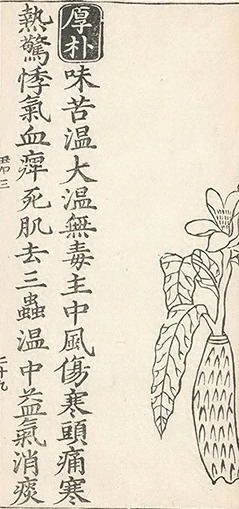 厚朴
味苦温大温無毒主中風傷寒頭痛寒
熱驚悸氣血痺死肌去三蟲温中益氣消痰
二十九